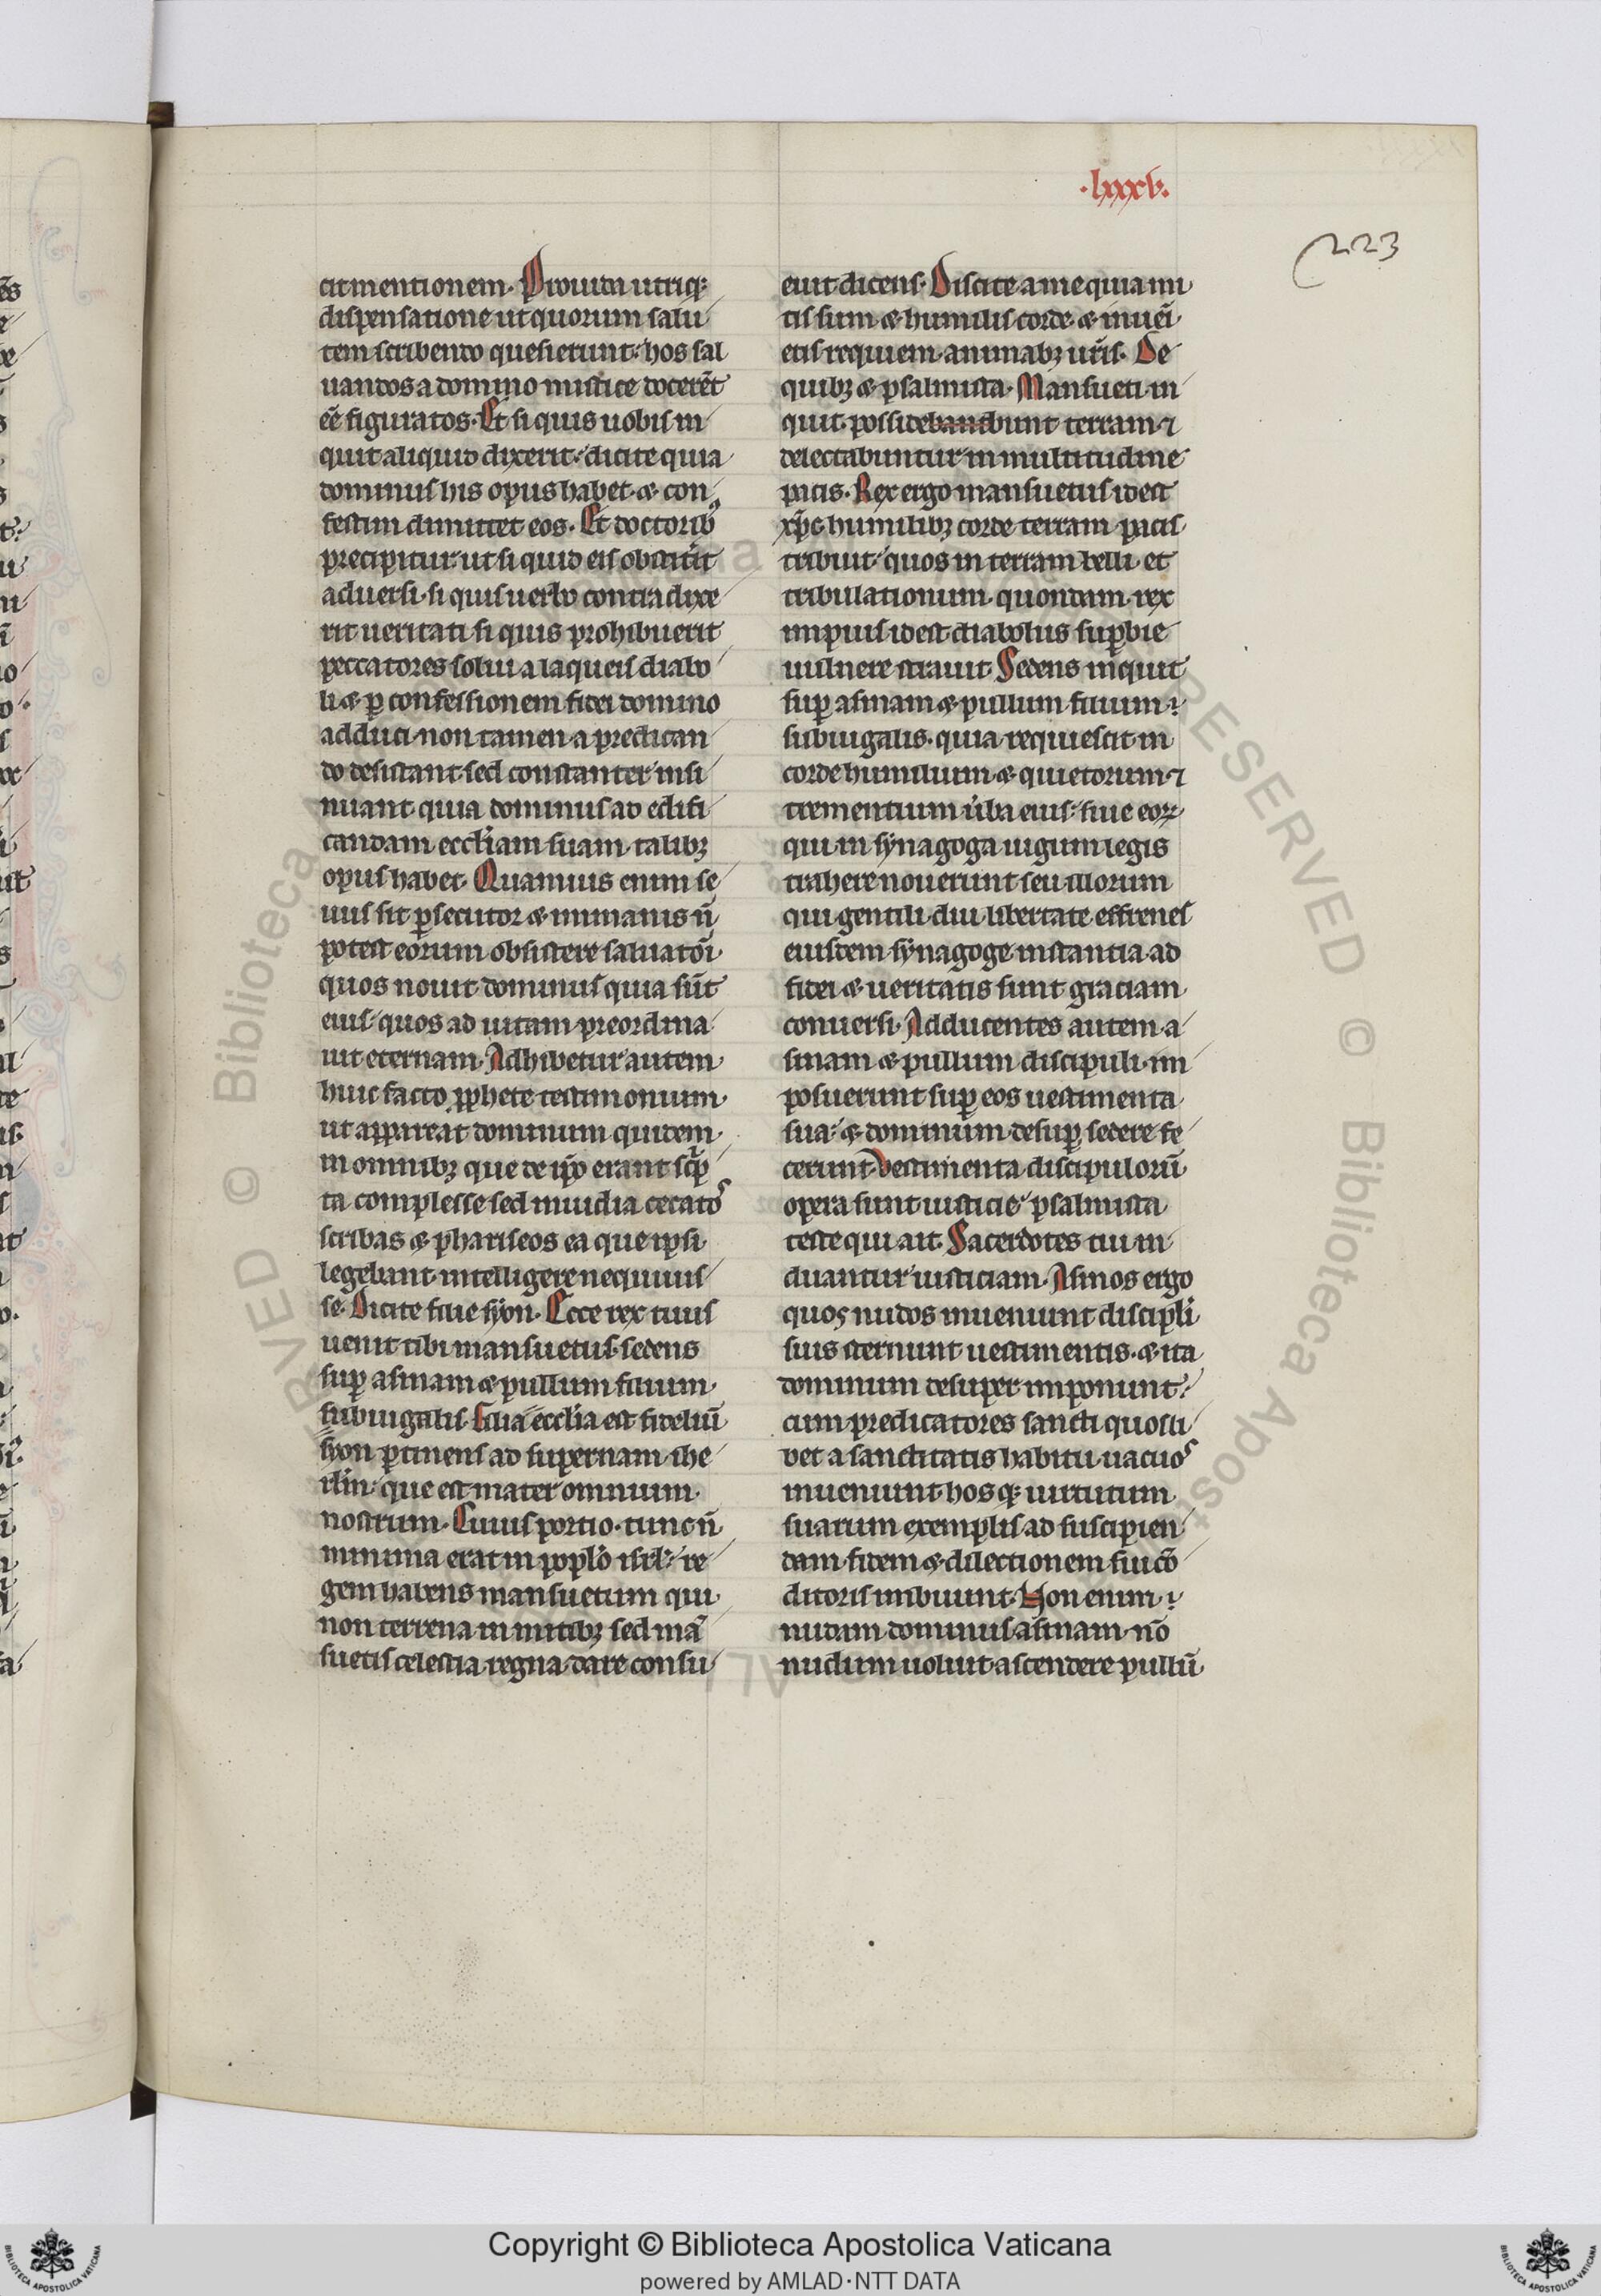 ·lxxxv·
223
cit mentionem. Prouida utriq;
dispensatione ut quorum salu
tem scribendo quesierunt: hos sal
uandos a domino mistice docerēt
eē figuratos. Et si quis uobis in
quit aliquid dixerit: dicite quia
dominus his opus habet. & con
festim dimittet eos. Et doctoribꝰ
precipitur. ut si quid eis obstiterit
aduersi. si quis uerbo contradixe
rit ueritati si quis prohibuerit
peccatores solui a laqueis diabo
li & ꝑ confessionem fidei domino
adduci. non tamen a predican
do desistant. sed constanter insi
nuant. quia dominus ad edifi
candam eccliam suam talibꝫ
opus habet. Quamuis enim se
uus sit ꝑsecutor & inmanis n̄
potest eorum obsistere saluatōi
quos nouit dominus quia sūt
eius quos ad uitam preordina
uit eternam. Adhibetur autem
huic facto ꝓphete testimonium
ut appareat dominum quidem
in omnibꝫ que de ipō erant sc̄p
ta complesse sed inuidia cecatos
scribas & phariseos ea que ipsi
legebant intelligere nequiuis
se. Dicite filie syon. Ecce rex tuus
uenit tibi mansuetus. sedens
suꝑ asinam & pullum filium
subiugalis. Filia ecclia est fideliū
syon ꝑtinens ad supernam ihe
rlm̄ que est mater omnium
nostrum. Cuius portio. tunc n̄
minima erat in poplo isrl: re
gem habens mansuetum qui
non terrena inmitibꝫ sed mā
suetis celestia regna dare consu
euit dicens. Discite a me quia mi
tis sum & humilis corde. & inuēi
etis requiem animabꝫ ur̄is. De
quibꝫ & psalmista. Mansueti in
quit. possidebandbunt terram ⁊
delectabuntur in multitudine
pacis. Rex ergo mansuetus idest
xp̄c humilibꝫ corde terram pacis
tribuit quos in terram belli et
tribulationum. quondam rex
impius idest diabolus suꝑbie
uulnere strauit. Sedens inquit
suꝑ asinam & pullum filium
subiugalis. quia requiescit in
corde humilium & quietorum ⁊
trementium ūba eius: siue eoꝝ
qui in synagoga iugum legis
trahere nouerunt seu illorum
qui gentili diu libertate effrenes
eiusdem synagoge instantia ad
fidei & ueritatis sunt graciam
conuersi. Adducentes autem a
sinam & pullum discipuli. im
posuerunt suꝑ eos uestimenta
sua: & dominum desuꝑ sedere fe
cerunt. Vestimenta discipulorū
opera sunt iusticie psalmista
teste qui ait. Sacerdotes tui in
duantur iusticiam. Asinos ergo
quos nudos inueniunt discipli
suis sternunt uestimentis. & ita
dominum desuper imponunt:
cum predicatores sancti quosli
bet a sanctitatis habitu uacuos
inueniunt hosq; uirtutum
suarum exemplis ad suscipien
dam fidem & dilectionem sui cō
ditoris imbuunt. Non enim
nudam dominus asinam. nō
nudum uoluit ascendere pullū
Copyright © Biblioteca Apostolica Vaticana
powered by AMLAD·NTT DATA